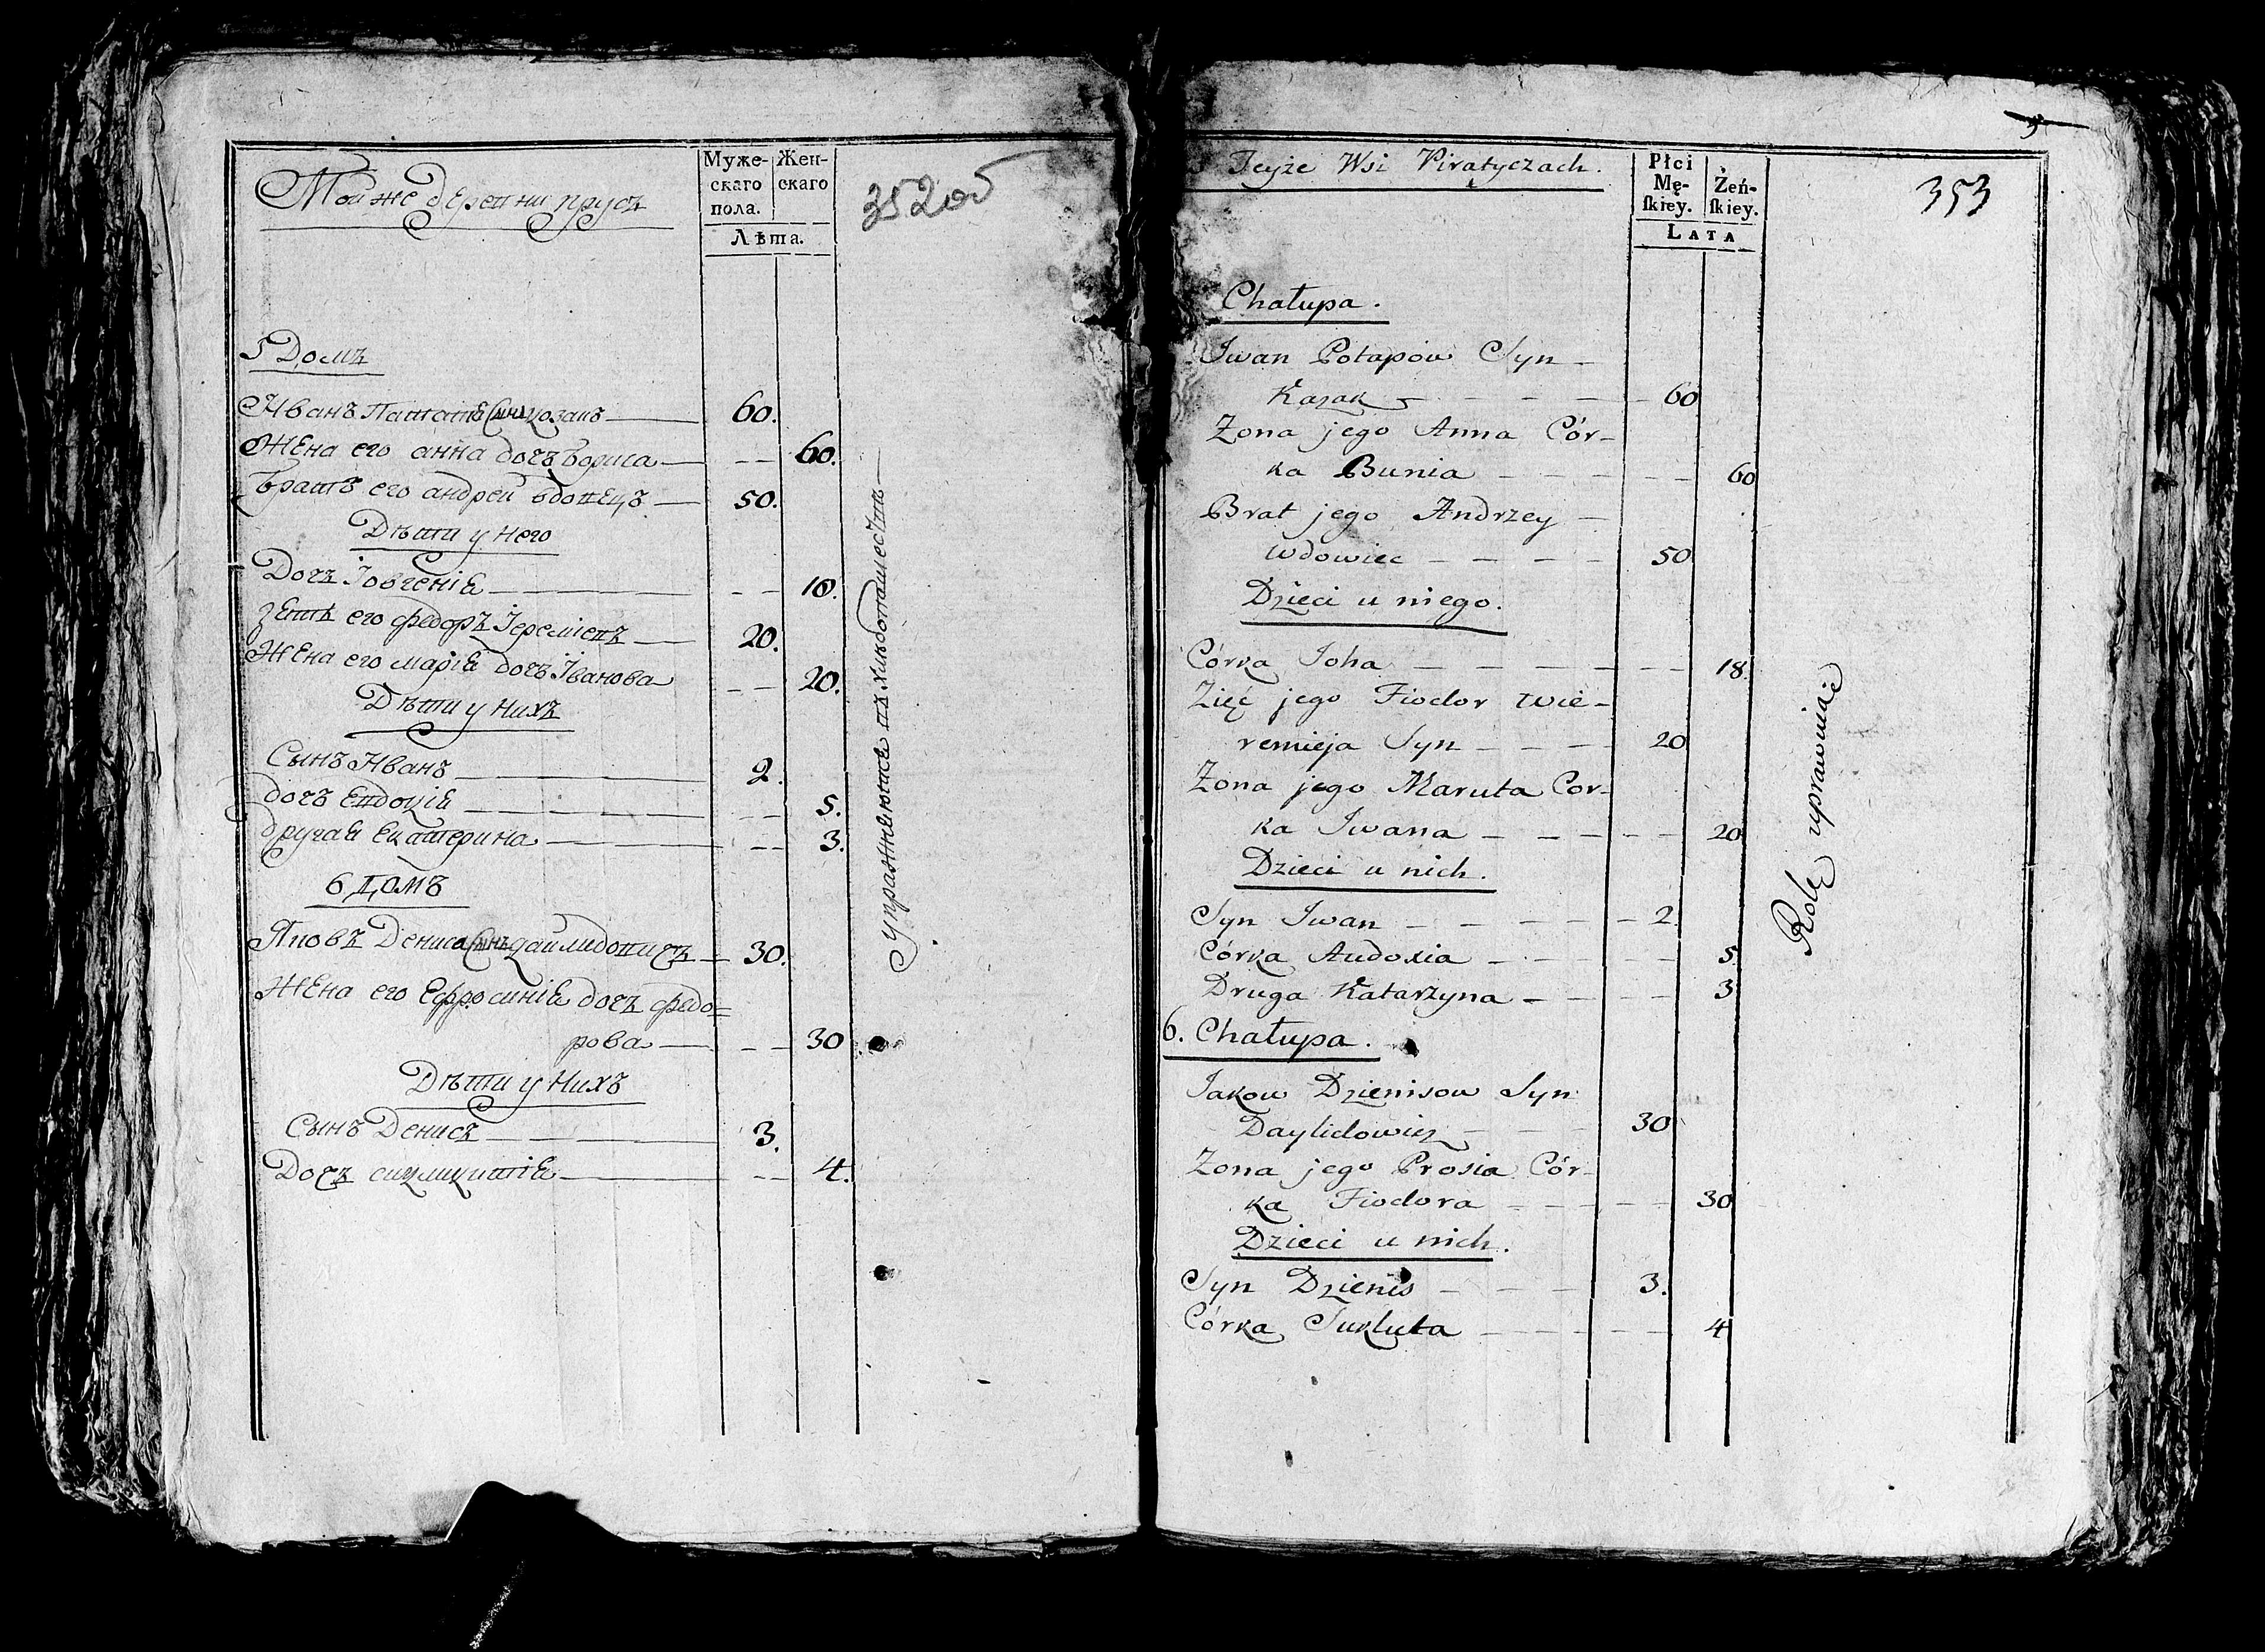 Тойже деревни прусъ
Муже-
скаго
пола.
Жен-
скаго
Лѣта.
352об
5 Домъ
Иванъ Патапа Сынъ козакъ — 60.
Жена его анна дочъ бориса — 60.
братъ его андрей вдовецъ — 50.
Дѣти у него
Дочъ Іовгенія — 18.
зеть его федоръ Іереміевъ — 20.
Жена его марія дочъ Іванова — 20.
Дѣти у нихъ
Сынъ Иванъ — 2.
дочъ евдокія — 5.
другая екатерина — 3.
6 домъ
Яковъ Дениса Сынъ дайлидовичъ — 30.
Жена его Ефросинія дочъ федо=
рова — 30
Дѣти у нихъ
Сынъ Денисъ — 3.
Дочъ — 4.
упражняются въ хлѣбопашествѣ
Teyże Wsi Piratyczach.
Płci
Mę-
ſkiey.
Żeń-
ſkiey.
LATA
353
Chałupa.
Iwan Potapow Syn —
Kazak — 60
Zona jego Anna Cór-
ka Bunia — 60
Brat jego Andrzey —
wdowiec — 50
Dzieci u niego.
Córka Joha — 18.
Zięć jego Fiodor Wie-
remieja Syn — 20
Zona jego Maruta Cor-
ka Iwana — 20
Dzieci u nich.
Syn Iwan — 2
Córka Audoxia — 5
Druga Katarzyna — 3
6. Chałupa.
Jakow Dzienisow Syn
Daylidowicz — 30
Zona jego Prosia Cór-
ka Fiodora — 30
Dzieci u nich.
Syn Dzienis — 3.
Córka Sukluta — 4
Rolę uprawniaię